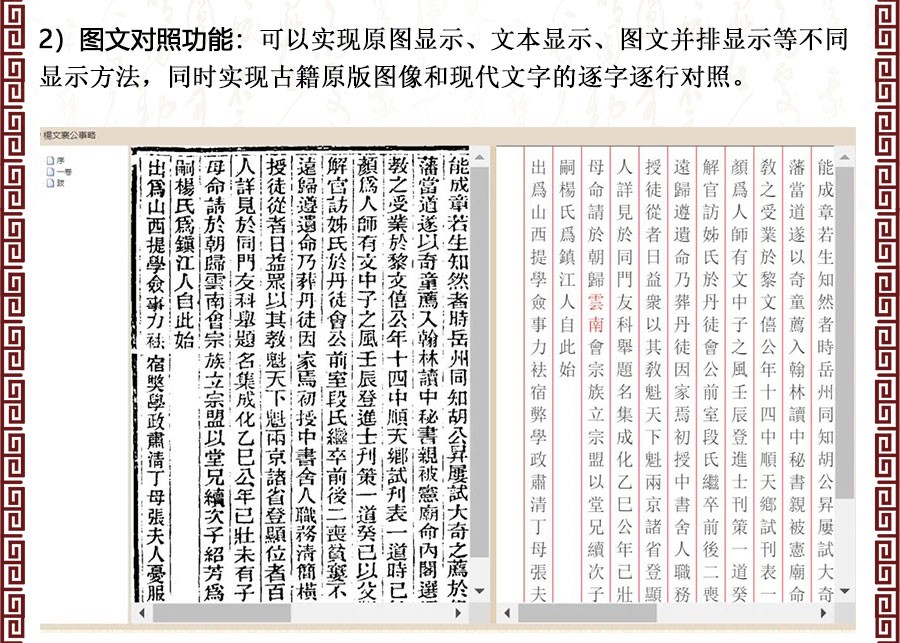 2）图文对照功能：可以实现原图显示、文本显示、图文并排显示等不同
显示方法，同时实现古籍原版图像和现代文字的逐字逐行对照。
楊文襄公事略
序
一卷
跋
能成章若生知然者時岳州同知胡公昇屢試大奇之薦於
藩當道遂以奇童薦入翰林讀中秘書親被憲廟命內閣選
敎之受業於黎文僖公年十四中順天鄉試刊表一道時已
顏爲人師有文中子之風壬辰登進士刊策一道癸巳以父
解官訪姊氏於丹徒會公前室段氏繼卒前後二喪貧窶不
遠歸遵遺命乃葬丹徒因家焉初授中書舍人職務清簡橫
授徒從者日益衆以其敎魁天下魁兩京諸省登顯位者百
人詳見於同門友科舉題名集成化乙巳公年已壯未有子
母命請於朝歸雲南會宗族立宗盟以堂兄續次子紹芳爲
嗣楊氏爲鎮江人自此始
出爲山西提學僉事力祛宿弊學政肅清丁母張夫人憂服
能成章若生知然者時岳州同知胡公昇屢試大奇
藩當道遂以奇童薦入翰林讀中秘書親被憲廟命
敎之受業於黎文僖公年十四中順天鄉試刊表一
顏爲人師有文中子之風壬辰登進士刊策一道癸
解官訪姊氏於丹徒會公前室段氏繼卒前後二喪
遠歸遵遺命乃葬丹徒因家焉初授中書舍人職務
授徒從者日益衆以其敎魁天下魁兩京諸省登顯
人詳見於同門友科舉題名集成化乙巳公年已壯
母命請於朝歸雲南會宗族立宗盟以堂兄續次子
嗣楊氏爲鎮江人自此始
出爲山西提學僉事力袪宿弊學政肅清丁母張夫